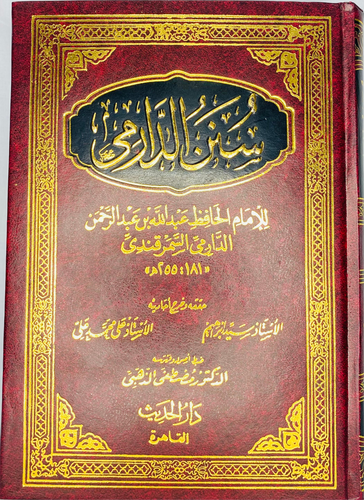 سُنَنُ الدَّارِمِيِّ
للإمام الحافظ عبدالله بن عبدالرحمن
الدارمي السمرقندي
«١٨١ : ٢٥٥ هـ»
حققه وخرج أحاديثه
الأستاذ سيد إبراهيم الأستاذ علي محمد علي
الدكتور مصطفى الذهبي
دار الحديث
القاهرة